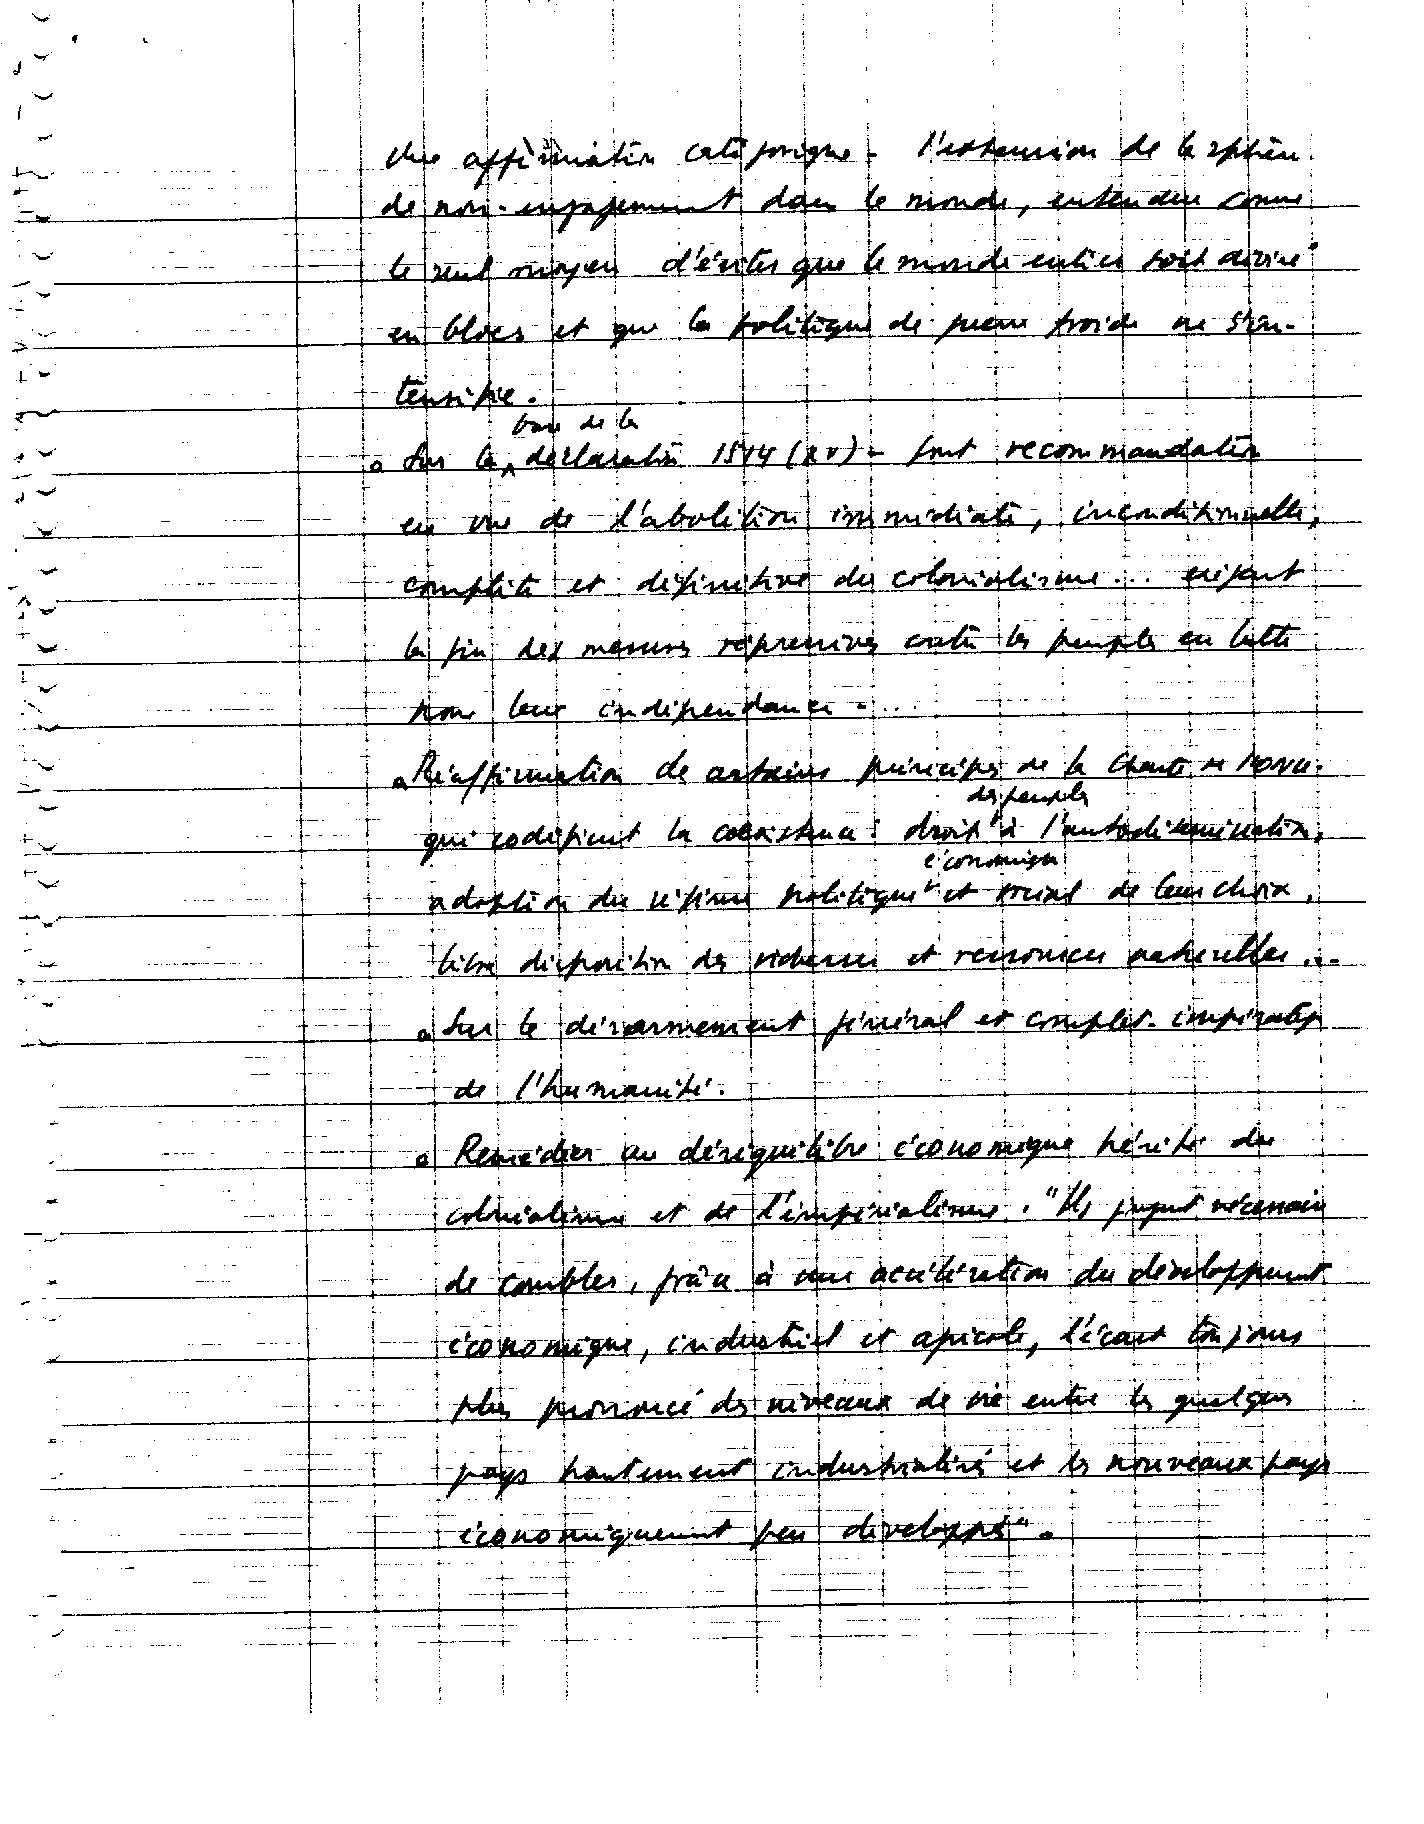 Une affirmation catégorique - l'extension de la sphère
de non-engagement dans le monde, entendue comme
le seul moyen d'éviter que le monde entier soit divisé
en blocs et que la politique de guerre froide ne s'in-
tensifie.
base de la
o Sur la déclaration 1514 (XV) - font recommandation
en vue de l'abolition immédiate, inconditionnelle,
complète et définitive du colonialisme... exigent
la fin des mesures répressives contre les peuples en lutte
pour leur indépendance - ...
o Réaffirmation de certains principes de la Charte de l'ONU
des peuples
qui codifient la coexistence : droit à l'autodétermination,
économique
adoption du régime politique et social de leur choix,
libre disposition des richesses et ressources naturelles...
o Sur le désarmement général et complet - impératif
de l'humanité.
o Remédier au déséquilibre économique hérité du
colonialisme et de l'impérialisme. "Ils jugent nécessaire
de combler, grâce à une accélération du développement
économique, industriel et agricole, l'écart toujours
plus prononcé des niveaux de vie entre les quelques
pays hautement industrialisés et les nouveaux pays
économiquement peu développés".